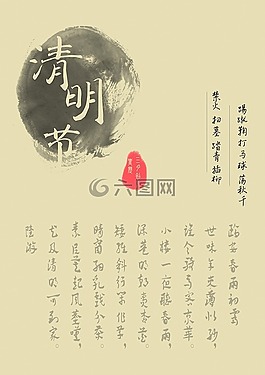 清明节
踢蹴鞠 打马球 荡秋千
禁火 扫墓 踏青 插柳
六图网
临安春雨初霁
世味年来薄似纱，
谁令骑马客京华。
小楼一夜听春雨，
深巷明朝卖杏花。
矮纸斜行闲作草，
晴窗细乳戏分茶。
素衣莫起风尘叹，
犹及清明可到家。
陆游